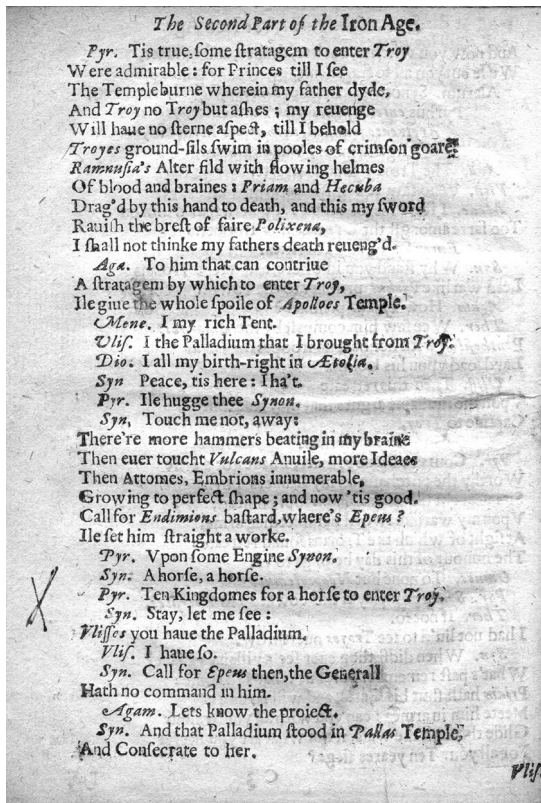 The Second Part of the Iron Age.
Pyr. Tis true, ſome ſtratagem to enter Troy
Were admirable: for Princes till I ſee
The Temple burne wherein my father dyde,
And Troy no Troy but aſhes; my reuenge
Will haue no ſterne aſpect, till I behold
Troyes ground-ſils ſwim in pooles of crimſon goare,
Ramnuſia's Alter fild with flowing helmes
Of blood and braines: Priam and Hecuba
Drag'd by this hand to death, and this my ſword
Rauiſh the breſt of faire Polixena,
I ſhall not thinke my fathers death reueng'd.
Aga. To him that can contriue
A ſtratagem by which to enter Troy,
Ile giue the whole ſpoile of Apolloes Temple.
Mene. I my rich Tent.
Vliſ. I the Palladium that I brought from Troy.
Dio. I all my birth-right in Ætolia.
Syn Peace, tis here: I ha't.
Pyr. Ile hugge thee Synon.
Syn, Touch me not, away:
There're more hammers beating in my braine
Then euer toucht Vulcans Anuile, more Ideaes
Then Attomes, Embrions innumerable,
Growing to perfect ſhape; and now 'tis good.
Call for Endimions baſtard, where's Epeus?
Ile ſet him ſtraight a worke.
Pyr. Vpon ſome Engine Synon.
Syn. A horſe, a horſe.
Pyr. Ten Kingdomes for a horſe to enter Troy.
Syn. Stay, let me ſee:
Vliſſes you haue the Palladium.
Vliſ. I haue ſo.
Syn. Call for Epeus then, the Generall
Hath no command in him.
Agam. Lets know the proiect.
Syn. And that Palladium ſtood in Pallas Temple,
And Conſecrate to her.
Vliſ.